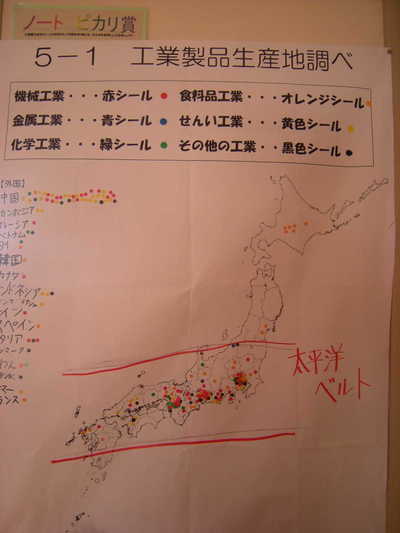 ノート ピカリ賞
5－1 工業製品生産地調べ
機械工業・・・赤シール 食料品工業・・・オレンジシール
金属工業・・・青シール せんい工業・・・黄色シール
化学工業・・・緑シール その他の工業・・黒色シール
【外国】
中国
カンボジア
レーシア
ベトナム
タイ
韓国
カナダ
ンドネシア
イン
スペイン
タリア
ンマーク
マー
ランス
太平洋
ベルト